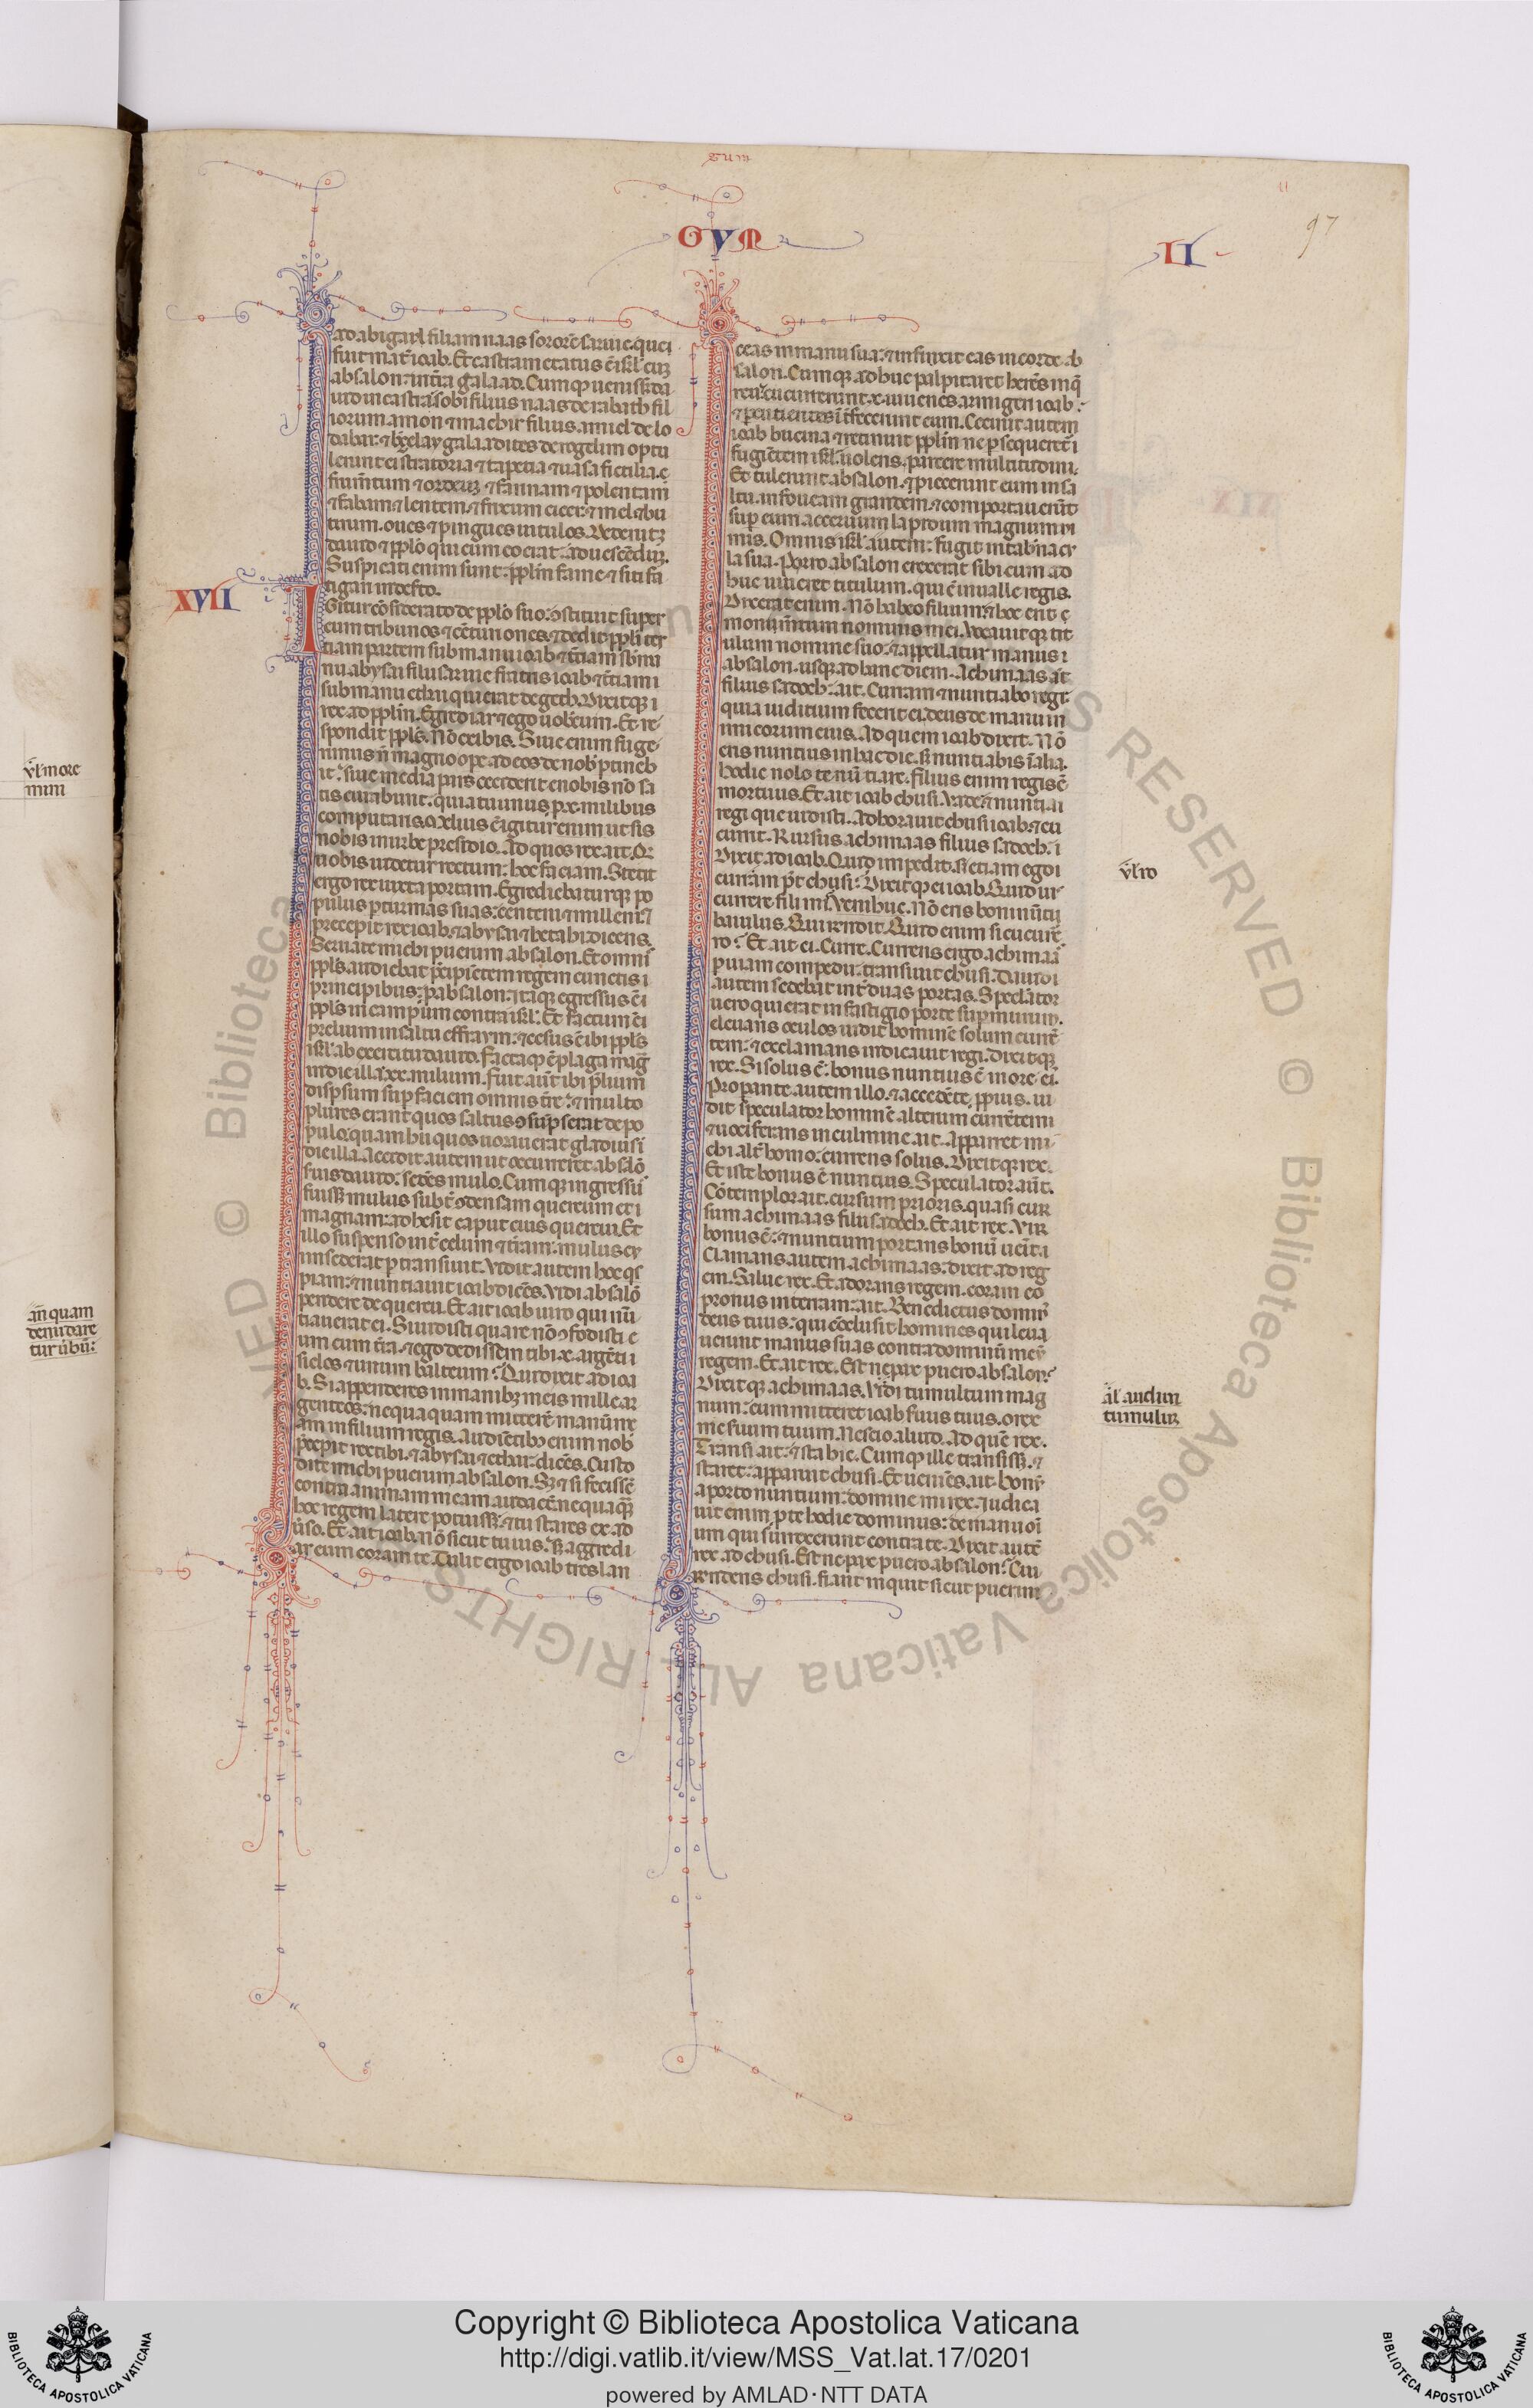 tum
OVM
II
97
ad abigail filiam naas sororē saruie. que i
fuit mat̄ ioab. Et castrametatus ē isr̄l cuȝ
absalon: in t̄ra galaad. Cumqȝ uenisset da
uid in castra: sobi filius naas de rabath fil
iorum amon ⁊ machir filius amiel de lo
dabar. ⁊ berzelay galaadites de rogelim optu
lerunt ei stratoria ⁊ tapetia ⁊ uasa fictilia. ⁊
frum̄tum ⁊ ordeuȝ ⁊ farinam ⁊ polentam
⁊ fabam ⁊ lentem ⁊ frixum cicer: ⁊ mel ⁊ bu
tirum. oues ⁊ pingues uitulos. Dederūtqȝ
dauid ⁊ pplō qui cum eo erat: ad uescēduȝ.
Suspicati enim sunt: pplm̄ fame ⁊ siti fa
tigari in deserto.
XVII
Igitur cōsiderato dauid pplō suo: ꝯstituit super
eum tribunos ⁊ cēturiones. ⁊ dedit ppli ter
tiam partem sub manu ioab ⁊ t̄tiam sub ma
nu abysai filii saruie fratris ioab ⁊ t̄tiam
sub manu ethai qui erat de geth. Dixitqȝ
rex ad pplm̄. Egrediar ⁊ ego uobiscum. Et re
spondit ppls̄. Nō exibis. Siue enim fuge
rimus n̄ magno ope ad eos de nob̄ ptineb
it. siue media pars ceciderit e nobis nō sa
tis curabunt. quia tu unus p x. milibus
computaris. Melius ē igitur enim ut sis
nobis in urbe presidio. Ad quos rex ait. Qd̄
uobis uidetur rectum: hoc faciam. Stetit
ergo rex iuxta portam. Egrediebaturqȝ po
pulus p turmas suas: centeni ⁊ milleni. ⁊
precepit rex ioab. ⁊ abysai ⁊ hetahi dicens.
Seruate michi puerum absalon. Et omnis
ppls̄ audiebat p̄cipiētem regem cunctis
principibus: p absalon. Itaqȝ egressus ē
ppls̄ in campum contra isr̄l. Et factum ē
prelium in saltu effraym: ⁊ cesus ē ibi ppls̄
isr̄l ab exercitu dauid. Factaqȝ ē plaga maḡ
in die illa. xx. milium. Fuit aūt ibi p̄lium
dispsum sup faciem omnis t̄re. ⁊ multo
plures erant quos saltus ꝯsūpserat de po
pulo: quam hii quos uorauerat gladius i
die illa. Accidit autem ut occurreret absalō
suis dauid: sedēs mulo. Cumqȝ ingressus
fuisset mulus subter ꝯdensam quercum et
magnam: adhesit caput eius quercui. Et
illo suspenso int̄ celum ⁊ t̄ram: mulus cui
insederat p transiuit. Vidit autem hoc qs̄
piam: ⁊ nuntiauit ioab dicēs. Vidi absalō
pendere de quercu. Et ait ioab uiro qui nū
tiauerat ei. Si uidisti quare nō ꝯfodisti e
um cum t̄ra. ⁊ ego dedissem tibi x. argēti
siclos ⁊ unum balteum. Qui dixit ad ioa
b. Si appenderes in manibȝ meis mille ar
genteos: nequaquam mitterē manū me
am in filium regis. Audiētibȝ enim nob̄
p̄cepit rex tibi. ⁊ abysai ⁊ ethai: dicēs. Custo
dite michi puerum absalon. Sȝ ⁊ si fecissē
contra animam meam audacē: nequaqȝ
hoc regem latere potuisset. ⁊ tu stares ex ad
uerso. Et ait ioab. Nō sicut tu uis. sȝ aggredi
ar eum coram te. Tulit ergo ioab tres lan
ceas in manu sua: ⁊ infixit eas in corde ab
salon. Cumqȝ adhuc palpitaret herēs in q̄
rcu: cucurrerunt x. iuuenēs armigeri ioab.
⁊ percutientes int̄fecerunt eum. Cecinit autem
ioab bucina ⁊ retinuit pplm̄ ne psequeret̄
fugiētem isr̄l: uolens parcere multitudini.
Et tulerunt absalon. ⁊ piecerunt eum in sa
ltu. in foueam grandem. ⁊ comportauerūt
sup eum aceruum lapidum magnum ni
mis. Omnis isr̄l autem: fugit in tab̄nacu
la sua. Porro absalon erexerat sibi cum ad
huc uiueret titulum. qui ē in ualle regis.
Dixerat enim. Nō habeo filium: ⁊ hoc erit
monum̄tum nominis mei. Vocauitqȝ tit
ulum nomine suo: ⁊ appellatur manus
absalon. usqȝ ad hanc diem. Achimaas aūt
filius sadoch: ait. Curram ⁊ nuntiabo regi:
quia iuditium fecerit ei deus de manu in
imicorum eius. Ad quem ioab dixit. Nō
eris nuntius in hac die. sȝ nuntiabis ī alia.
hodie nolo te nūtiare. filius enim regis ē
mortuus. Et ait ioab chusi. Vade ⁊ nuntia
regi que uidisti. Adorauit chusi ioab: ⁊ cu
currit. Rursus achimaas filius sadoch:
Dixit ad ioab. Quid impedit. si etiam ego
curram p̄t chusi: Dixitqȝ ei ioab. Quid uis
currere fili mi. Veni huc. Nō eris boni nūtii
baiulus. Qui r̄ndit. Quid enim si cucurre
ro. Et ait ei. Curre. Currens ergo achimaas
p uiam compendii: transiuit chusi. Dauid
autem sedebat int̄ duas portas. Speculator
uero qui erat in fastigio porte sup murum.
eleuans oculos uidit hominē solum curren
tem: ⁊ exclamans indicauit regi. Dixitqȝ
rex. Si solus ē: bonus nuntius ē in ore ei.
Properante autem illo. ⁊ accedēte ppius. ui
dit speculator hominē alterum currētem
⁊ uociferans in culmine ait. Apparet mi
chi alt̄ homo: currens solus. Dixitqȝ rex.
Et iste bonus ē nuntius. Speculator aūt.
Cōtemplor ait. cursum prioris. quasi cur
sum achimaas filii sadoch. Et ait rex. Vir
bonus ē: ⁊ nuntium portans bonū uenit.
Clamans autem achimaas: dixit ad reg
em. Salue rex. Et adorans regem. coram eo
pronus in terram: ait. Benedictus dominus
deus tuus: qui cōclusit homines qui leua
uerunt manus suas contra dominū meū
regem. Et ait rex. Est ne pax puero absalon.
Dixitqȝ achimaas. Vidi tumultum mag
num: cum mitteret ioab seruus tuus. o rex
me seruum tuum. Nescio aliud. Ad quē rex.
Transi ait: ⁊ sta hic. Cumqȝ ille transisset. ⁊
staret: apparuit chusi. Et ueniēs. ait. Bonū
aporto nuntium: domine mi rex. Iudica
uit enim p te hodie dominus: de manu oī
um qui surrexerunt contra te. Dixit autē
rex ad chusi. Est ne pax puero absalon. Cui
r̄ndens chusi. fiant inquit sicut puer ini
vl̄ more
mini
añ quam
denudare
tur
vl̄ ro
al̄ audiui
tumultuȝ
Copyright © Biblioteca Apostolica Vaticana
http://digi.vatlib.it/view/MSS_Vat.lat.17/0201
powered by AMLAD·NTT DATA
BIBLIOTECA APOSTOLICA VATICANA
BIBLIOTECA APOSTOLICA VATICANA
© Biblioteca Apostolica Vaticana ALL RIGHTS RESERVED